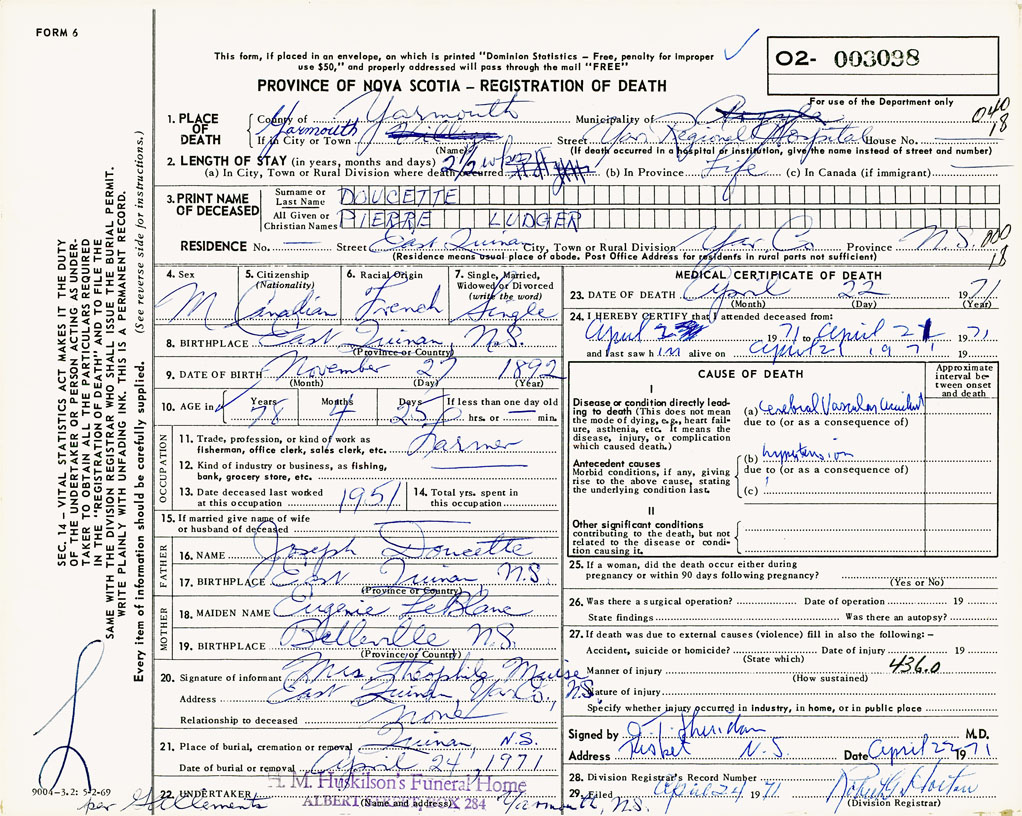 FORM 6
This form, if placed in an envelope, on which is printed "Dominion Statistics – Free, penalty for improper
use $50," and properly addressed will pass through the mail "FREE"
O2- 003098
PROVINCE OF NOVA SCOTIA – REGISTRATION OF DEATH
For use of the Department only
040
18
1. PLACE OF DEATH
County of Yarmouth Municipality of Argyle
If in City or Town Yarmouth Street Yar. Regional Hospital House No. —
(Name) (If death occurred in a hospital or institution, give the name instead of street and number)
2. LENGTH OF STAY (in years, months and days)
(a) In City, Town or Rural Division where death occurred 2½ (b) In Province Life (c) In Canada (if immigrant) —
3. PRINT NAME OF DECEASED
Surname or Last Name DOUCETTE
All Given or Christian Names PIERRE LUDGER
RESIDENCE No. — Street East Quinan City, Town or Rural Division Yar. Co. Province N.S. 000
18
(Residence means usual place of abode. Post Office Address for residents in rural parts not sufficient)
4. Sex M
5. Citizenship (Nationality) Canadian
6. Racial Origin French
7. Single, Married, Widowed or Divorced (write the word) Single
8. BIRTHPLACE East Quinan N.S.
(Province or Country)
9. DATE OF BIRTH November 27 1892
(Month) (Day) (Year)
10. AGE in Years 78 Months 4 Days 25 If less than one day old
hrs. or — min.
OCCUPATION
11. Trade, profession, or kind of work as
fisherman, office clerk, sales clerk, etc. Farmer
12. Kind of industry or business, as fishing,
bank, grocery store, etc. —
13. Date deceased last worked
at this occupation 1951
14. Total yrs. spent in
this occupation
15. If married give name of wife
or husband of deceased —
FATHER
16. NAME Joseph Doucette
17. BIRTHPLACE East Quinan N.S.
(Province or Country)
MOTHER
18. MAIDEN NAME Eugenie LeBlanc
19. BIRTHPLACE Belleville N.S.
(Province or Country)
20. Signature of informant Mrs. Théophile Muise
Address East Quinan Yar Co., N.S.
Relationship to deceased None
21. Place of burial, cremation or removal Quinan N.S.
Date of burial or removal April 24 1971
22. UNDERTAKER H. M. Huskilson's Funeral Home
(Name and address) ALBERT X 284 Yarmouth, N.S.
per
MEDICAL CERTIFICATE OF DEATH
23. DATE OF DEATH April 22 1971
(Month) (Day) (Year)
24. I HEREBY CERTIFY that I attended deceased from:
April 1971 to April 21 1971
and last saw him alive on April 21 1971 19
CAUSE OF DEATH
Approximate interval between onset and death
I
Disease or condition directly leading to death (This does not mean the mode of dying, e.g., heart failure, asthenia, etc. It means the disease, injury, or complication which caused death.)
(a) Cerebral Vascular Accident
due to (or as a consequence of)
Antecedent causes
Morbid conditions, if any, giving rise to the above cause, stating the underlying condition last.
(b) hypertension
due to (or as a consequence of)
(c)
II
Other significant conditions
contributing to the death, but not related to the disease or condition causing it.
25. If a woman, did the death occur either during
pregnancy or within 90 days following pregnancy?
(Yes or No)
26. Was there a surgical operation? Date of operation 19
State findings Was there an autopsy?
27. If death was due to external causes (violence) fill in also the following: –
Accident, suicide or homicide? Date of injury 19
(State which)
Manner of injury 436.0
(How sustained)
Nature of injury
Specify whether injury occurred in industry, in home, or in public place
Signed by Sheridan M.D.
Address N.S. Date April 22 1971
28. Division Registrar's Record Number
29. Filed April 24 1971
(Division Registrar)
9004-3.2: 5-2-69
SEC. 14 – VITAL STATISTICS ACT MAKES IT THE DUTY
OF THE UNDERTAKER OR PERSON ACTING AS UNDER-
TAKER TO OBTAIN ALL THE PARTICULARS REQUIRED
IN THE "REGISTRATION OF DEATH" AND TO FILE THE
SAME WITH THE DIVISION REGISTRAR WHO SHALL ISSUE THE BURIAL PERMIT.
WRITE PLAINLY WITH UNFADING INK. THIS IS A PERMANENT RECORD.
Every item of information should be carefully supplied. (See reverse side for instructions.)